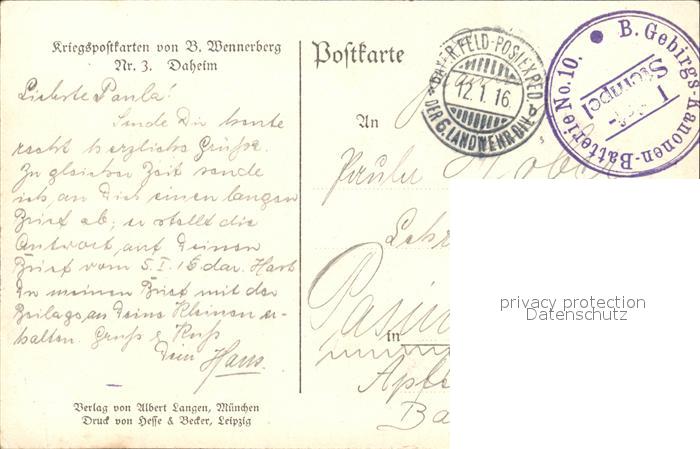 Kriegspostkarten von B. Wennerberg
Nr. 3. Daheim
Liebste Paula!
Sende Dir heute
recht herzliche Grüße.
Zu gleicher Zeit sende
ich an Dich einen langen
Brief ab; er stellt die
Antwort auf Deinen
Brief vom 5.I.16 dar. Hast
Du meinen Brief mit der
Beilage an Deine Kleinen er-
halten. Gruß & Kuß
Dein Hans.
Verlag von Albert Langen, München
Druck von Hesse & Becker, Leipzig
Postkarte
An
in
BAYER. FELD-POSTEXPED.
12.1.16.
DER 6. LANDWEHR-DIV.
B. Gebirgs-Kanonen-Batterie No. 10.
Stempel
privacy protection
Datenschutz